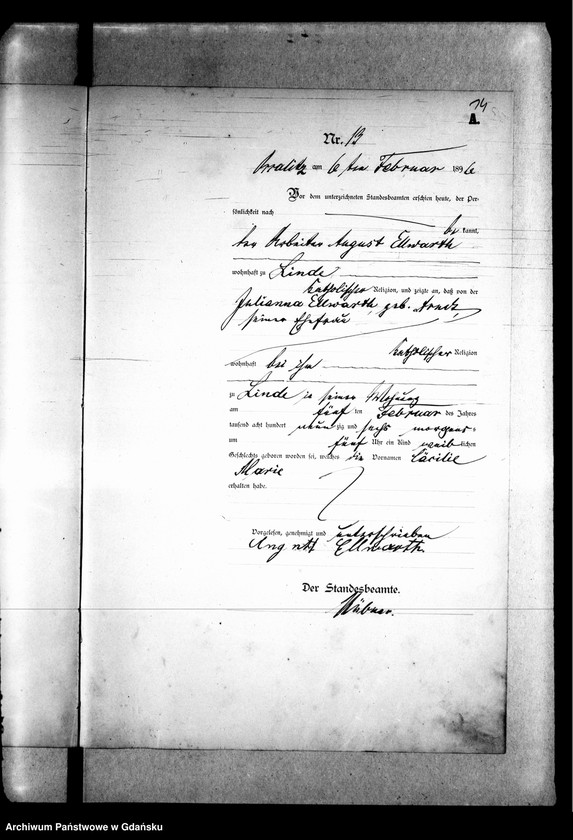 14
A.
Nr. 13
am 6 ten Februar 1896
Vor dem unterzeichneten Standesbeamten erschien heute, der Per-
sönlichkeit nach
be kannt,
der Arbeiter August Ellwarth
wohnhaft zu Linde
katholischer Religion, und zeigte an, daß von der
Julianna Ellwarth, geb. Arndt,
seiner Ehefrau
katholischer Religion
wohnhaft bei ihm
zu Linde in seiner Wohnung
am fünf ten Februar des Jahres
tausend acht hundert neun zig und sechs morgens
um fünf Uhr ein Kind weib lichen
Geschlechts geboren worden sei, welches die Vornamen Cäcilie
Marie
erhalten habe.
Vorgelesen, genehmigt und unterschrieben
August Ellwarth.
Der Standesbeamte.
Hübner.
Archiwum Państwowe w Gdańsku